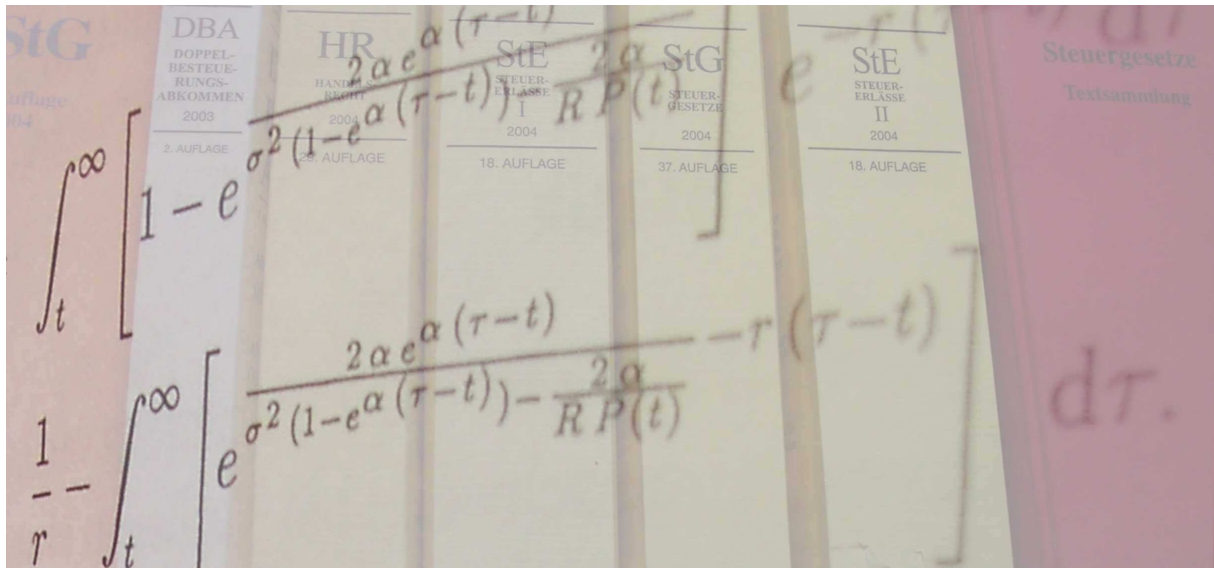 StG
uflage
DBA
DOPPEL-
BESTEUE-
RUNGS-
ABKOMMEN
2003
2. AUFLAGE
HR
HANDELS-
RECHT
2004
AUFLAGE
StE
STEUER-
ERLÄSSE
I
2004
18. AUFLAGE
StG
STEUER-
GESETZE
2004
37. AUFLAGE
StE
STEUER-
ERLÄSSE
II
2004
18. AUFLAGE
Steuergesetze
Textsammlung
∫_t^∞ [ 1 − e^{\frac{2 α e^{α (τ−t)}}{σ^2 (1−e^{α (τ−t)}) − \frac{2 α}{R P(t)}}} ] e^{−r (τ−t)} dτ
\frac{1}{r} − ∫_t^∞ [ e^{\frac{2 α e^{α (τ−t)}}{σ^2 (1−e^{α (τ−t)}) − \frac{2 α}{R P(t)}} − r (τ−t)} ] dτ.